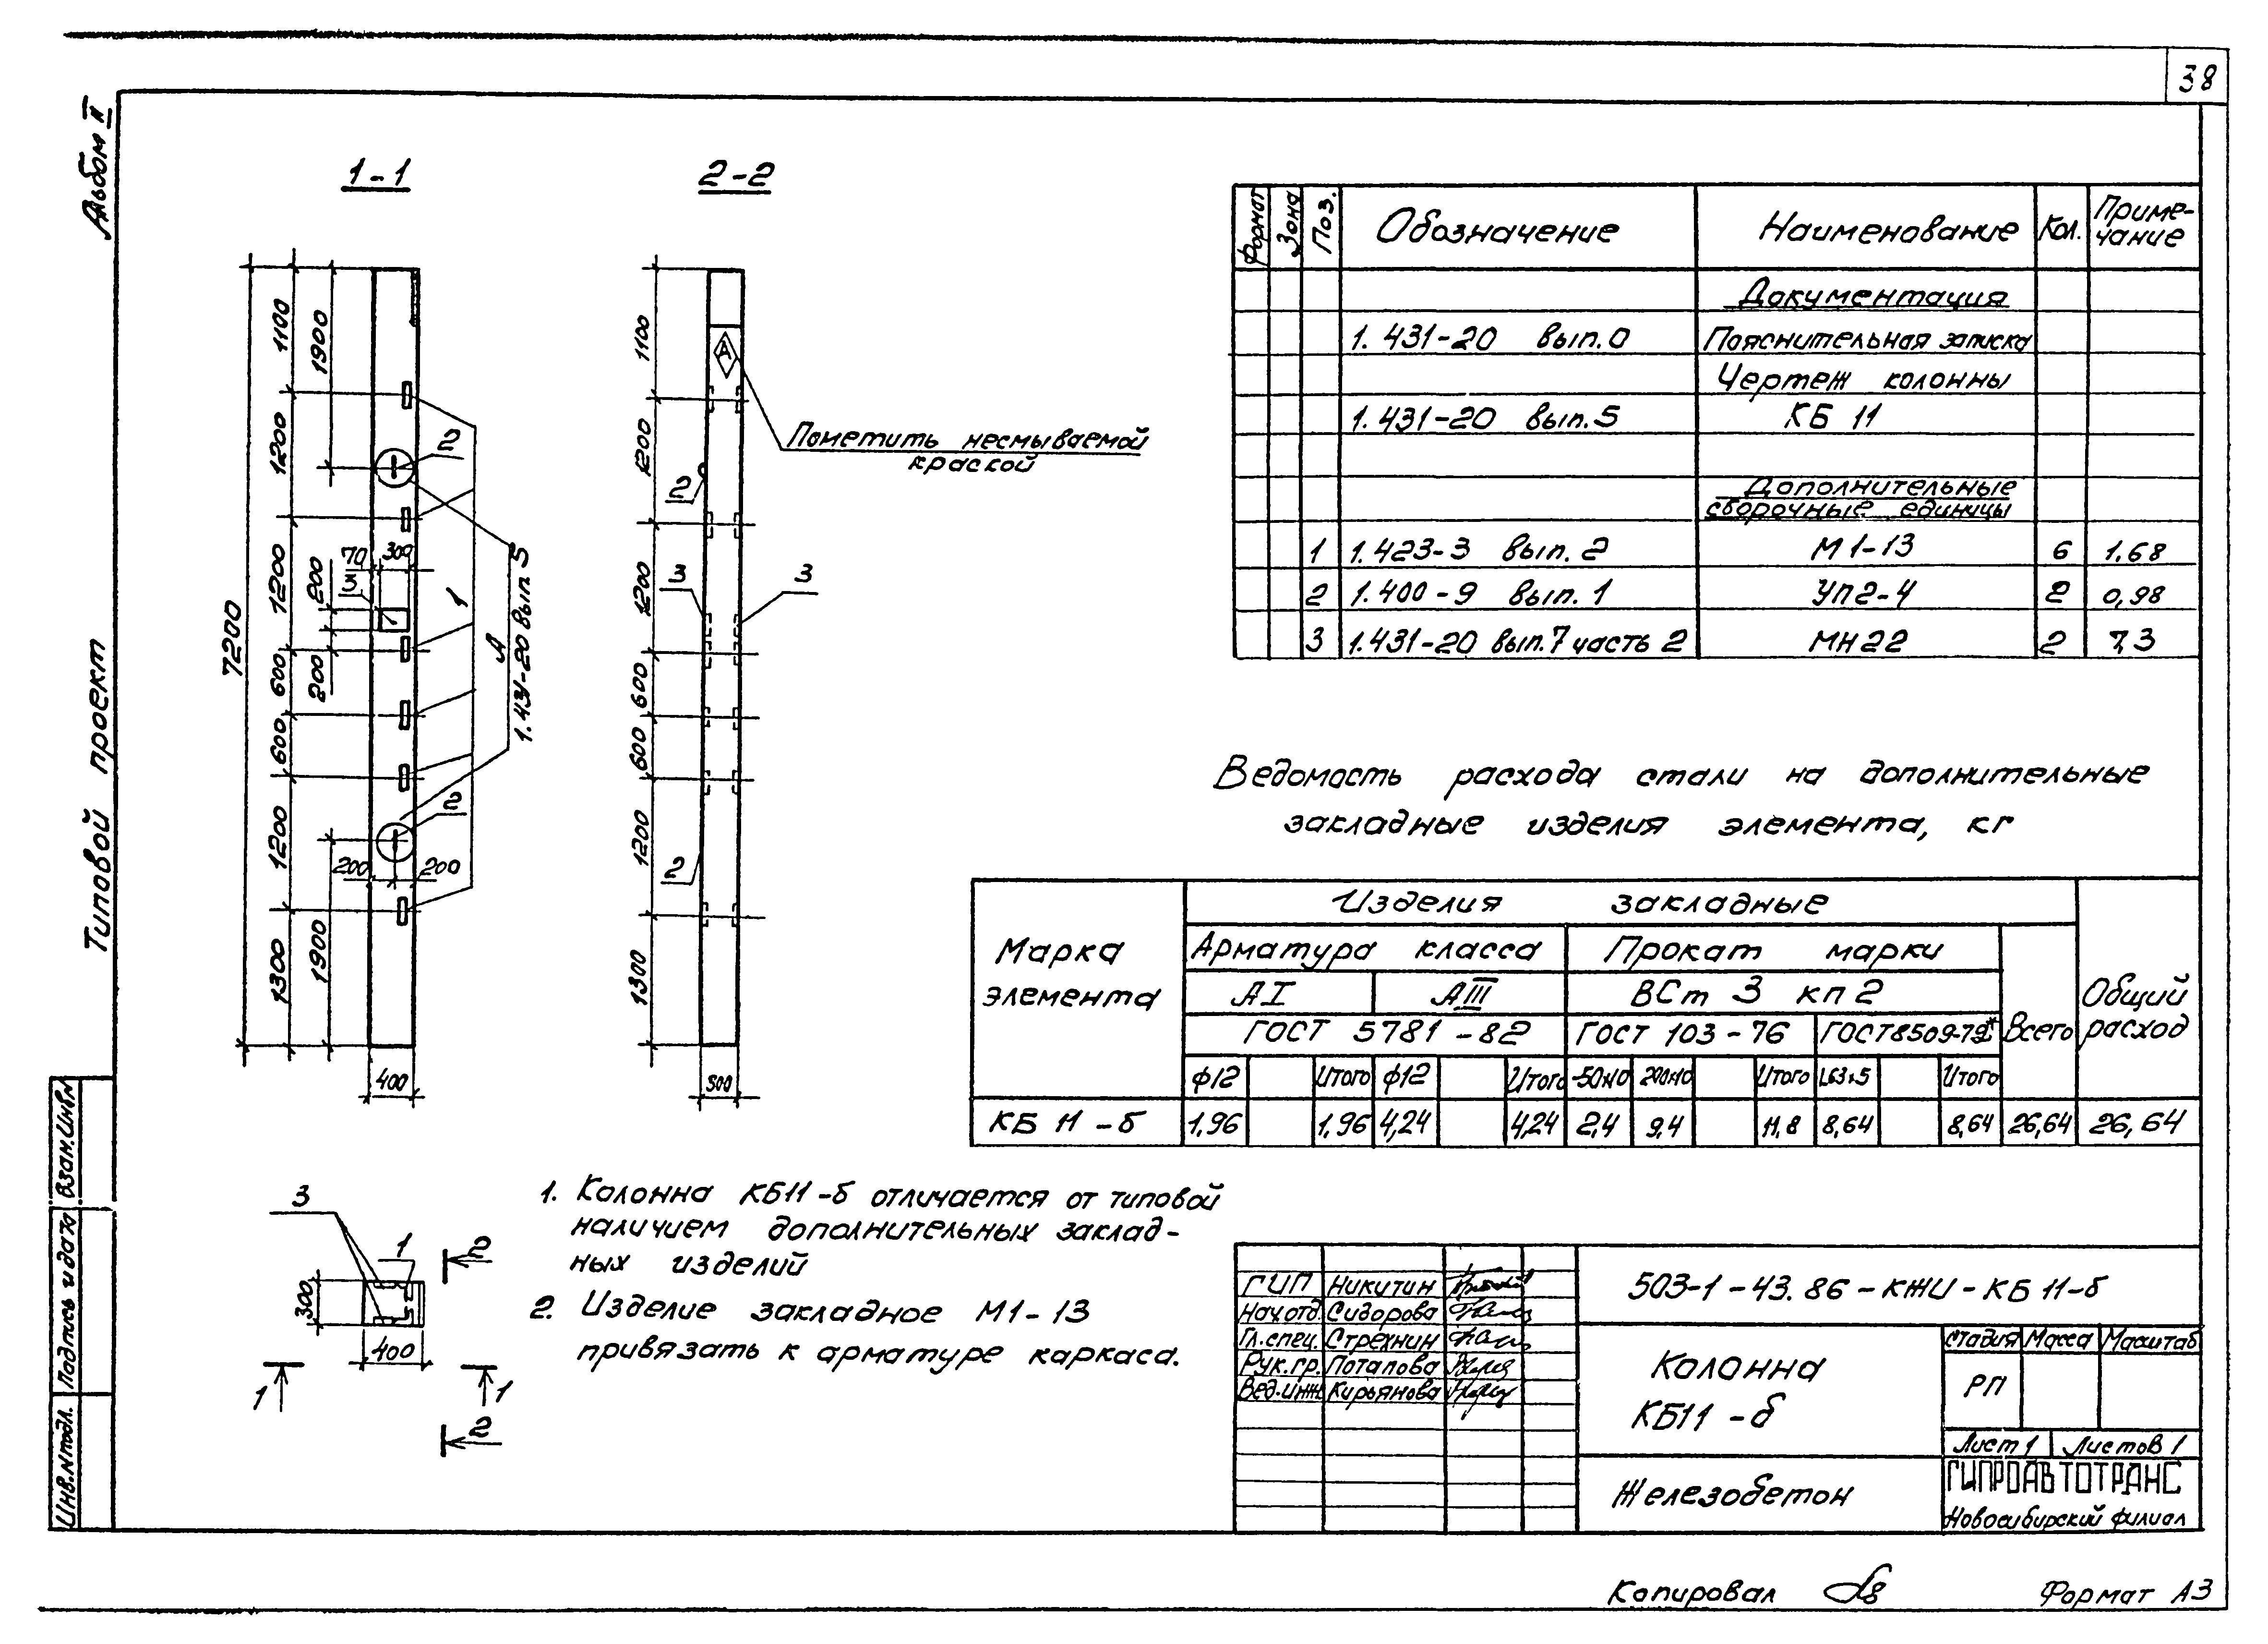 38
Альбом II
Типовой проект
1-1
2-2
7200
1100
1200
1200
600
600
1200
1300
1900
200
200
1900
70
300
3
2
1
2
200
200
400
А
1.431-20 вып 5
1100
1200
1200
600
600
1200
1300
А
2
3
3
2
300
Пометить несмываемой
краской
Формат Зона Поз. Обозначение Наименование Кол. Приме-
чание
Документация
1.431-20 вып.0 Пояснительная записка
Чертеж колонны
1.431-20 вып.5 КБ 11
Дополнительные
сборочные единицы
1 1.423-3 вып. 2 М1-13 6 1,68
2 1.400-9 вып. 1 УП2-4 2 0,98
3 1.431-20 вып.7 часть 2 МН22 2 7,3
Ведомость расхода стали на дополнительные
закладные изделия элемента, кг
Марка
элемента
Изделия закладные
Арматура класса Прокат марки
АI АIII ВСт 3 кп2
ГОСТ 5781-82 ГОСТ 103-76 ГОСТ8509-72* Всего
Общий
расход
ф12 Итого ф12 Итого -50х10 200х10 Итого L63х5 Итого
КБ 11-б 1,96 1,96 4,24 4,24 2,4 9,4 11,8 8,64 8,64 26,64 26,64
3
1
300
400
2
2
1
1
1. Колонна КБ11-б отличается от типовой
наличием дополнительных заклад-
ных изделий
2. Изделие закладное М1-13
привязать к арматуре каркаса.
ГИП Никутин
Нач.отд. Сидорова
Гл.спец. Стрехнин
Рук.гр. Потапова
Вед.инж. Кирьянова
503-1-43.86-КЖИ-КБ 11-б
Колонна
КБ11-б
Стадия Масса Масштаб
РП
Лист 1 Листов 1
Железобетон
ГИПРОАВТОТРАНС
Новосибирский филиал
Взам.Инв.N
Подпись и дата
Инв.N подл.
Копировал
Формат А3